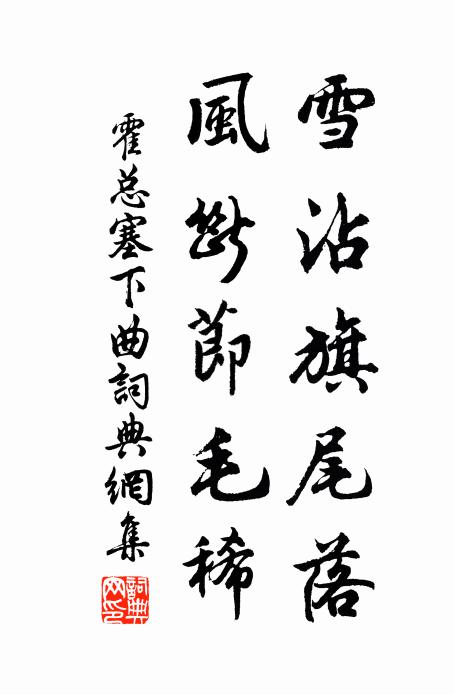 雪沾旗尾落
風斷節毛稀
霍总塞下曲詞典網集
詞典網印